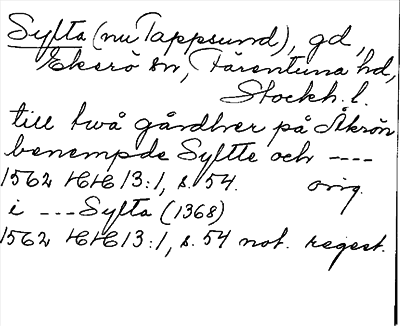 Sylta (nu Tappsund), gd,
Ekerö sn, Färentuna hd,
Stockh. l.
till två gårdher på Åkrön
benempde Syltte och ----
1562 HH 13:1, s. 54. orig.
i --- Sylta (1368)
1562 HH 13:1, s. 54 not. regest.